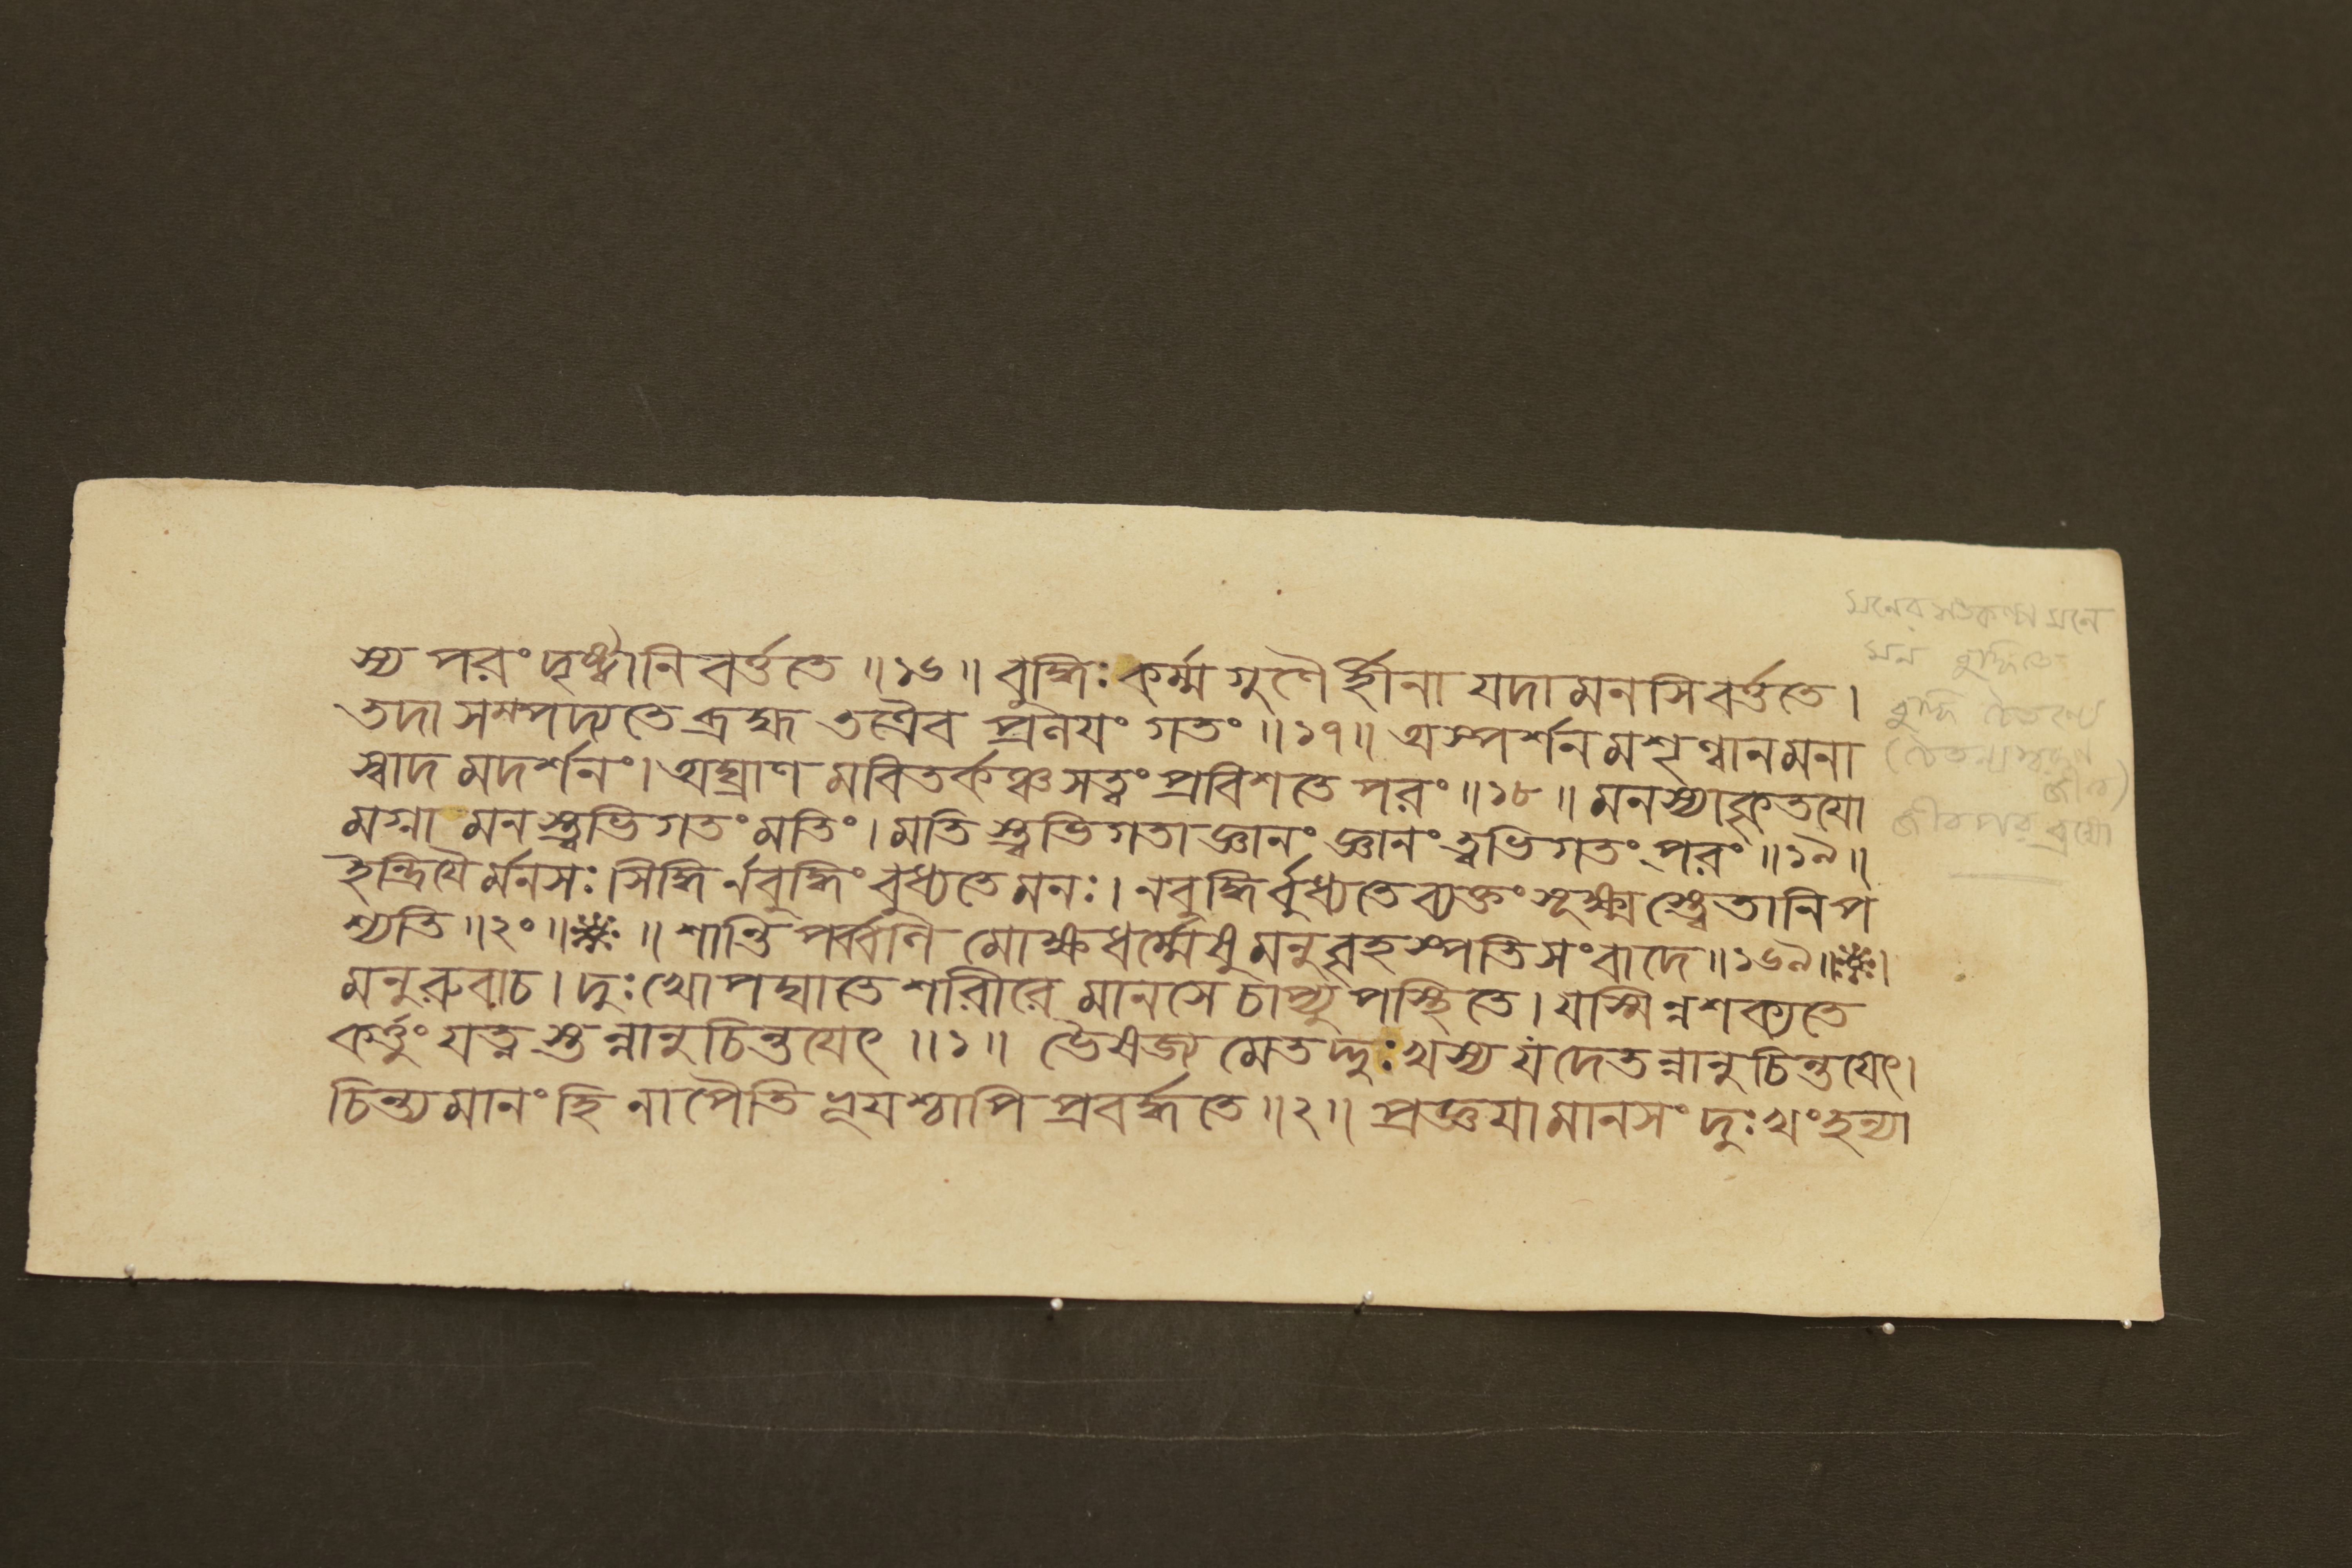 স্য পরং দৃষ্ট্বা নিবর্ত্ততে ॥১৬॥ বুদ্ধিঃ কর্ম্মগুণৈর্হীনা যদা মনসি বর্ত্ততে।
তদা সম্পদ্যতে ব্রহ্ম তত্রৈব প্রলয়ং গতং ॥১৭॥ অস্পর্শনমশৃণ্বানমনা
স্বাদমদর্শনং। অঘ্রাণমবিতর্কঞ্চ সত্ত্বং প্রবিশতে পরং ॥১৮॥ মনস্যাকৃতয়ো
মগ্না মনস্ত্বভিগতং মতিং। মতিস্ত্বভিগতা জ্ঞানং জ্ঞানং ত্বভিগতং পরং ॥১৯॥
ইন্দ্রিয়ৈর্মনসঃ সিদ্ধির্নবুদ্ধিং বুধ্যতে মনঃ। নবুদ্ধির্বুধ্যতে ব্যক্তং সূক্ষ্মস্ত্বেতানি প
শ্যতি ॥২০॥ ॥ শান্তিপর্ব্বণি মোক্ষধর্ম্মেষু মনুবৃহস্পতিসংবাদে ॥১৬৯॥
মনুরুবাচ। দুঃখোপঘাতে শরীরে মানসে চাপ্যুপস্থিতে। যস্মিন্নশক্যতে
কর্ত্তুং যত্নস্তন্নানুচিন্তয়েৎ ॥১॥ ভৈষজ্যমেতদ্দুঃখস্য যদেতন্নানুচিন্তয়েৎ।
চিন্ত্যমানং হি নাপৈতি ভূয়শ্চাপি প্রবর্দ্ধতে ॥২॥ প্রজ্ঞয়া মানসং দুঃখং হন্যা
মনের মনে
মন বুদ্ধিতে
বুদ্ধি চৈতন্যে
জীব)